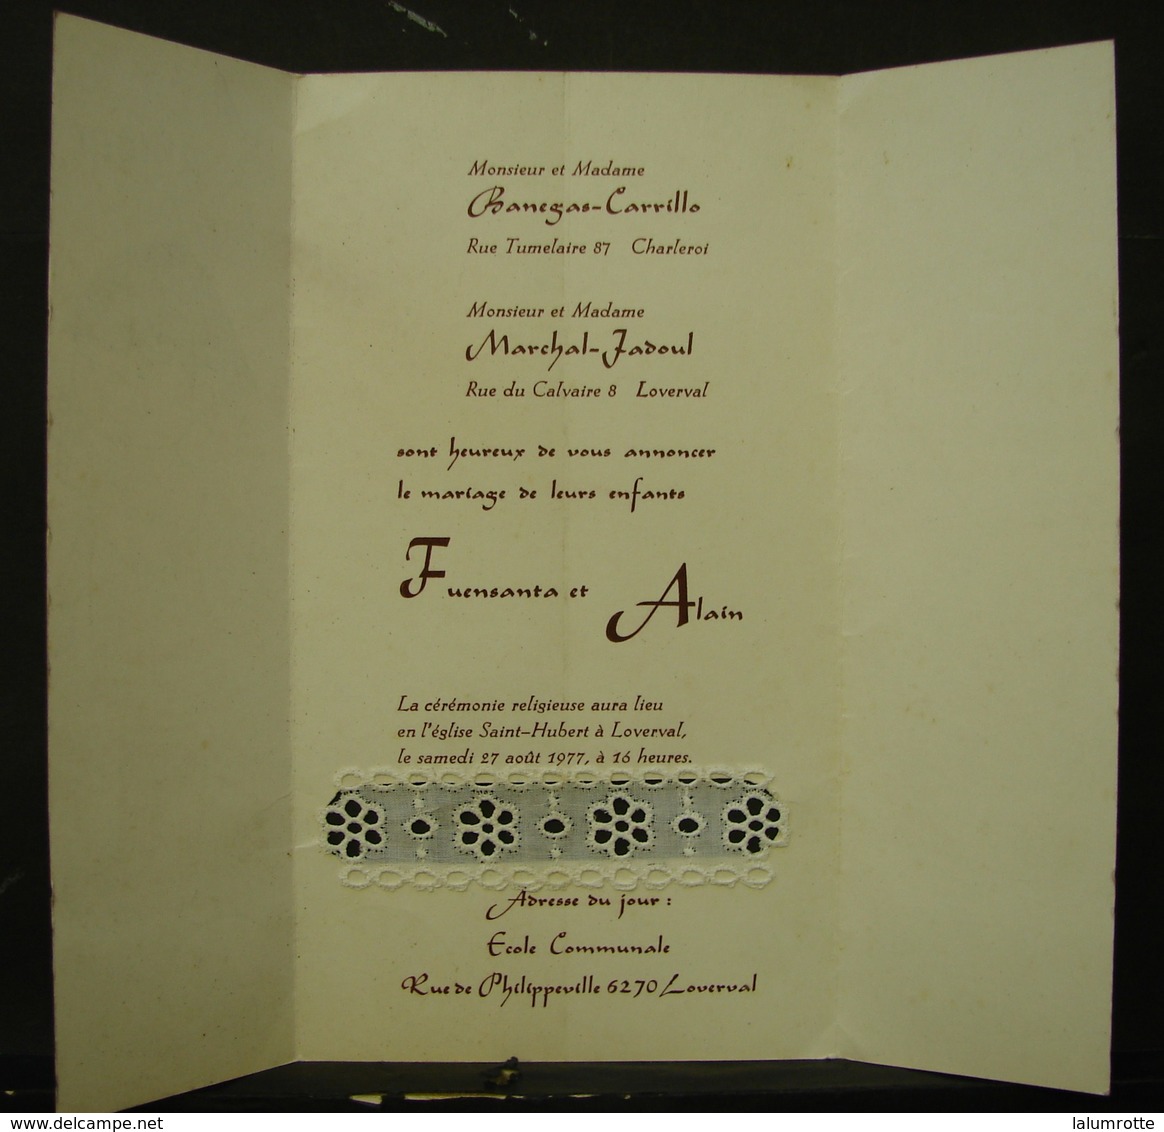 Monsieur et Madame
Banegas-Carrillo
Rue Tumelaire 87 Charleroi
Monsieur et Madame
Marchal-Jadoul
Rue du Calvaire 8 Loverval
sont heureux de vous annoncer
le mariage de leurs enfants
Fuensanta et Alain
La cérémonie religieuse aura lieu
en l'église Saint-Hubert à Loverval,
le samedi 27 août 1977, à 16 heures.
Adresse du jour :
Ecole Communale
Rue de Philippeville 6270 Loverval
www.delcampe.net
lalumrotte